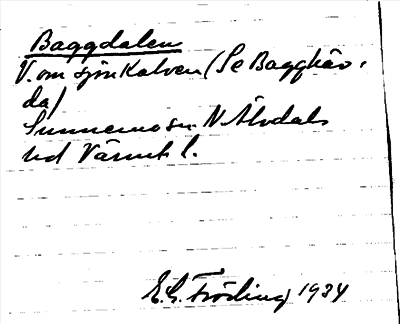 Baggdalen
V. om sjön Kalven (Se Bagghäv-
da)
Sunnemo sn. N. Älvdals
hd Värml l.
E. G. Fröding 1934